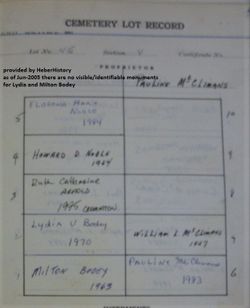 CEMETERY LOT RECORD
Lot No. 46 Section V Certificate No.
PROPRIETOR
provided by HeberHistory
as of Jun-2005 there are no visible/identifiable monuments
for Lydia and Milton Bodey
PAULINE McCLIMANS
5
NOBLE
1984
10
4
HOWARD D. NOBLE
1964
9
3
Ruth Catherine
ARNOLD
1975 CREMATION
8
2
Lydia V Bodey
1970
WILLIAM L. McCLIMANS
1967
7
1
MILTON BODEY
1963
PAULINE McClimans
1983
6